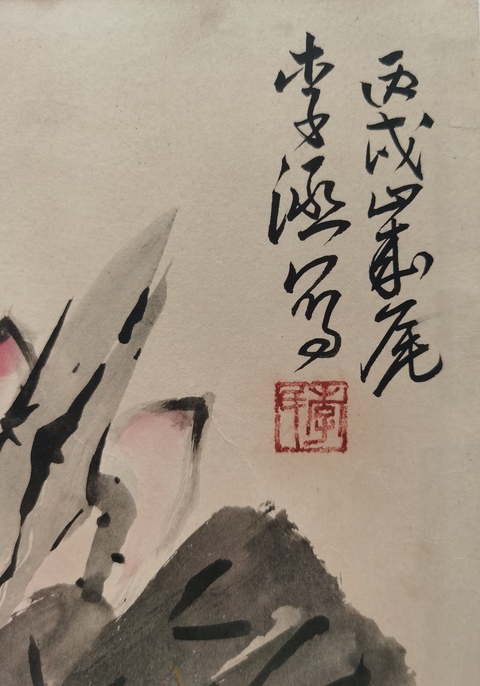 丙戌岁尾
李涵写
李